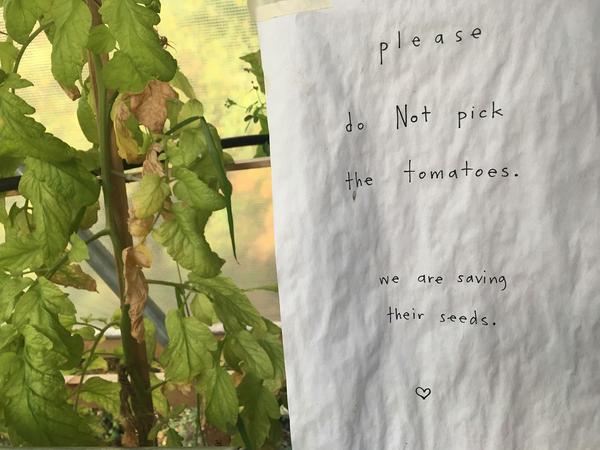 please
do Not pick
the tomatoes.
we are saving
their seeds.
♡